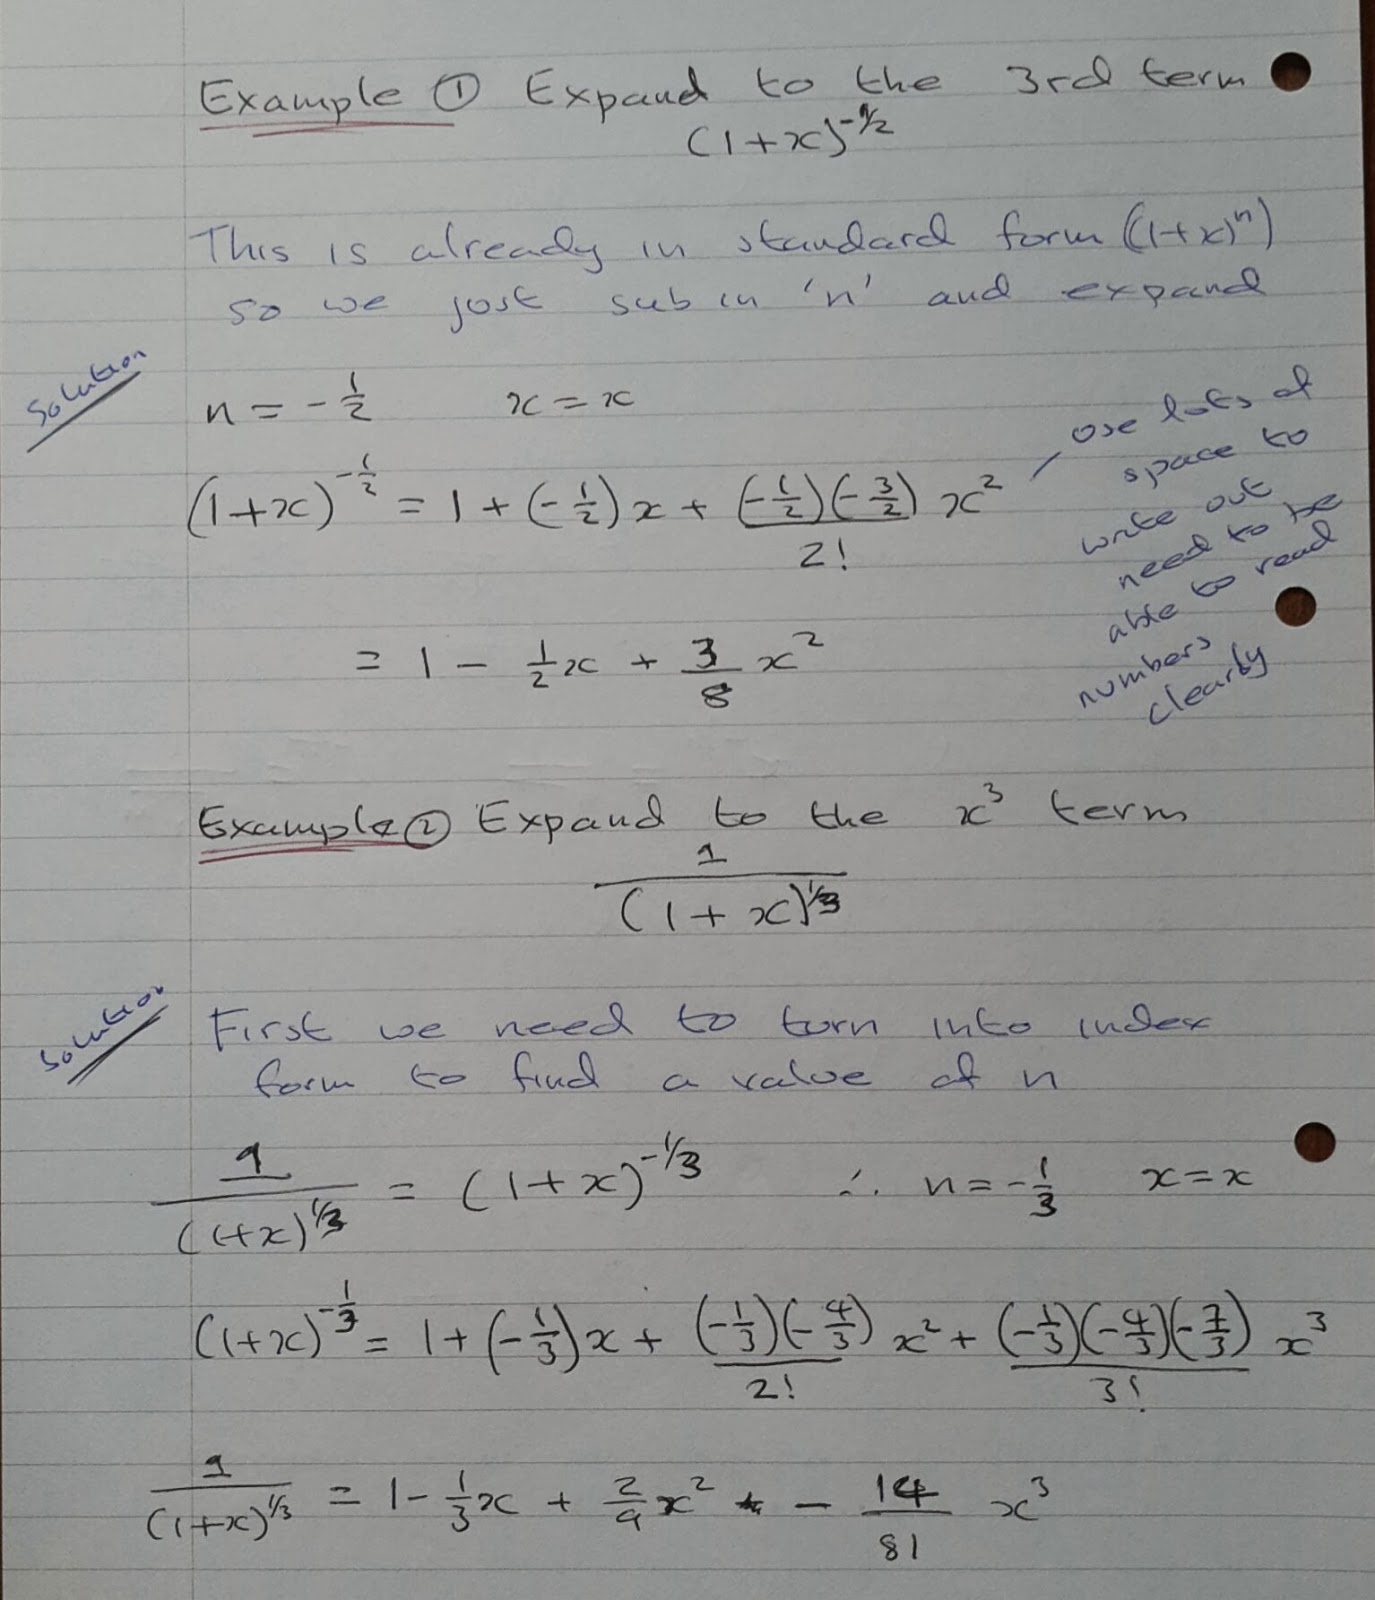 Example ① Expand to the 3rd term
(1+x)^-1/2
This is already in standard form ((1+x)^n)
so we just sub in 'n' and expand
Solution
n = -1/2 x = x
(1+x)^-1/2 = 1 + (-1/2)x + (-1/2)(-3/2)/2! x^2
use lots of
space to
write out
need to be
able to read
numbers
clearly
= 1 - 1/2x + 3/8 x^2
Example ② Expand to the x^3 term
1/(1+x)^1/3
Solution
First we need to turn into index
form to find a value of n
1/(1+x)^1/3 = (1+x)^-1/3 ∴ n = -1/3 x = x
(1+x)^-1/3 = 1 + (-1/3)x + (-1/3)(-4/3)/2! x^2 + (-1/3)(-4/3)(-7/3)/3! x^3
1/(1+x)^1/3 = 1 - 1/3x + 2/9x^2 - 14/81 x^3